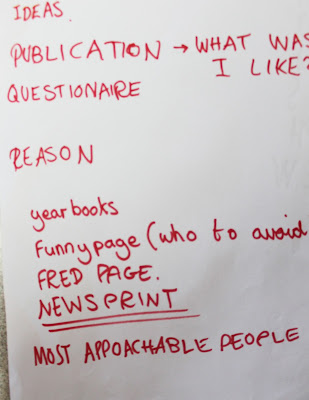 IDEAS.
PUBLICATION → WHAT WAS
I LIKE?
QUESTIONAIRE
REASON
yearbooks
Funny page (who to avoid
FRED PAGE.
NEWSPRINT
MOST APPOACHABLE PEOPLE